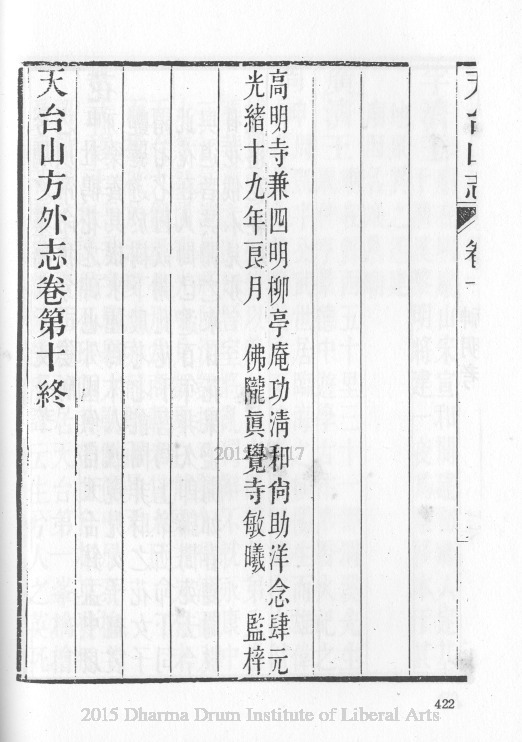 天台山志
卷十
高明寺兼四明柳亭庵功淸和尙助洋念肆元
光緖十九年良月 佛隴眞覺寺敏曦 監梓
天台山方外志卷第十終
422
2015 Dharma Drum Institute of Liberal Arts